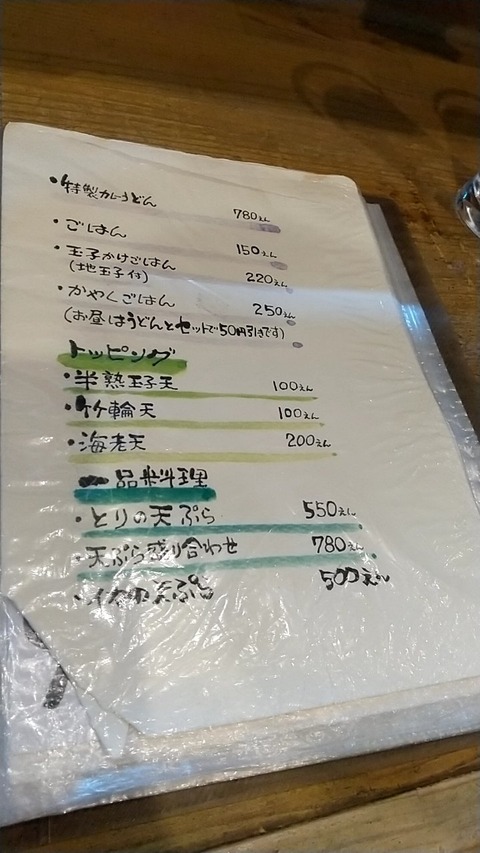 ・特製カレーうどん 780えん
・ごはん 150えん
・玉子かけごはん 220えん
(地玉子付)
・かやくごはん 250えん
(お昼はうどんとセットで50円引きです)
トッピング
・半熟玉子天 100えん
・竹輪天 100えん
・海老天 200えん
一品料理
・とりの天ぷら 550えん
・天ぷら盛り合わせ 780えん
・イカの天ぷら 500えん